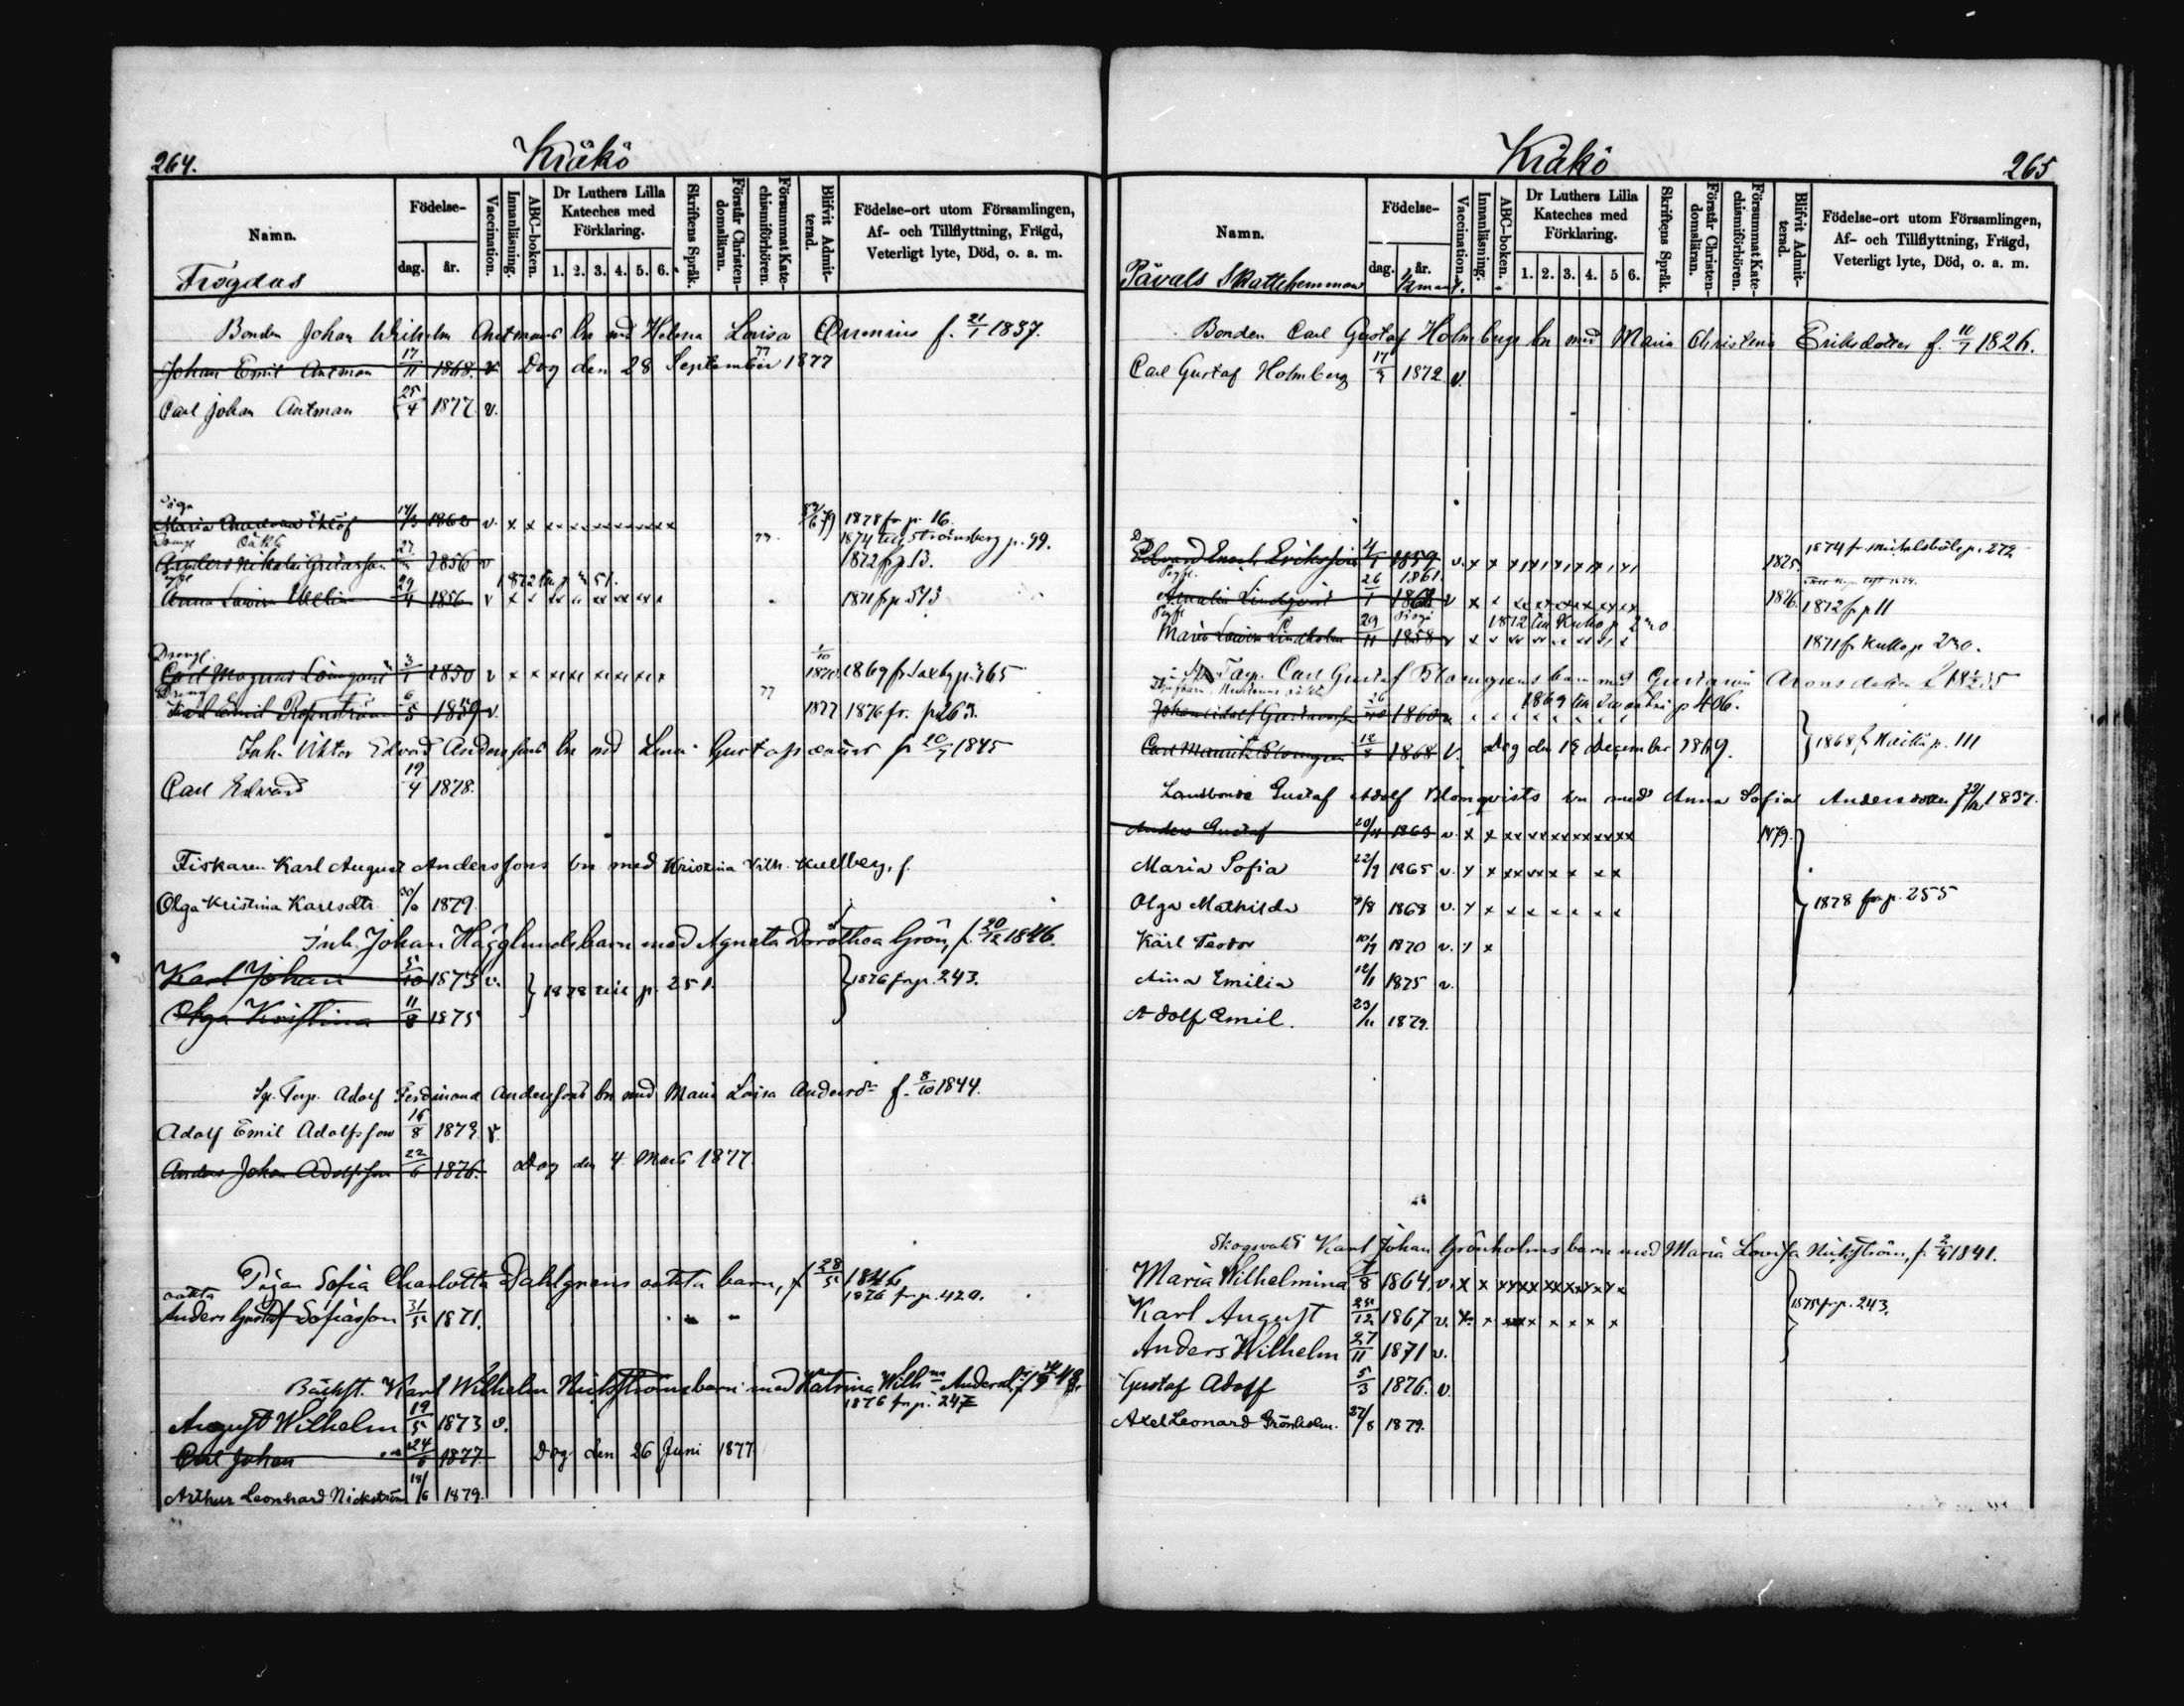 264.
Kråkö
Namn.
Födelse-
dag.
år.
Vaccination.
Innanläsning.
ABC-boken.
Dr Luthers Lilla Kateches med Förklaring.
1. 2. 3. 4. 5. 6.
Skriftens Språk.
Förstår Christen-domsläran.
Försummat Kate-chismiförhören.
Blifvit Admit-terad.
Födelse-ort utom Församlingen,
Af- och Tillflyttning, Frägd,
Veterligt lyte, Död, o. a. m.
Frögdas
Bonden Johan Wilhelm Antmans bn med Helena Lovisa f. 21/1 1837.
Johan Emil Antman 17/11 1868. v. Dog den 28 September 1877 77
Carl Johan Antman 25/4 1877 v.
Piga
Maria Ekelöf 14/3 1862 v. x x xx xx xx xx xx xx 79 1878 fr p. 16.
Dreng oäkta 77. 1874 till Strömsberg p. 99.
Anders Nikolai Gustafsson 27 1856 v 1872 fr p 13.
1872 p. 51.
Anna Lovisa 29/4 1856 v x x 1871 fr p 513
Drengl.
Carl Magnus Löngqvist 3/1 1850 v x x xx xx xx xx x 1/10 1870. 1869 fr Saxby p. 765
Dreng 77
Karl Emil 6/5 1859 v. 1877 1876 fr. p 263.
Inh. Viktor Edvard Anderssons bn med Lena Gustafs f 20/9 1845
Carl Edvard 19/4 1878.
Fiskaren Karl August Anderssons bn med Kristina Vilh. Kullberg, f.
Olga Kristina Karlsdtr 30/6 1879.
Inh. Johan Hägglunds barn med Agneta Dorothea Grön, f. 20/12 1846.
Karl Johan 5/10 1873 v. } 1878 till p. 251. } 1876 fr p. 243.
Olga Kristina 11/8 1875
Sp. Torp. Adolf Ferdinand Anderssons bn med Maria Lovisa Andersdr f. 8/10 1844.
Adolf Emil Adolfsson 16/8 1873. v.
Anders Johan Adolfsson 22/6 1876. Dog den 4 Mars 1877.
Pigan Sofia Charlotta Dahlgrens oäkta barn, f 28/5 1846
oäkta 1876 fr p. 420.
Anders Gustaf Sofiasson 31/5 1871.
Backst. Karl Wilhelm Nickströms barn med Katrina Wilhna Andersd.
1876 fr p. 247
August Wilhelm 19/5 1873 v.
Carl Johan 24/6 1877. Dog den 26 Juni 1877
Arthur Leonhard Nickström 18/6 1879.
Kråkö
265
Namn.
Födelse-
dag.
år.
Vaccination.
Innanläsning.
ABC-boken.
Dr Luthers Lilla Kateches med Förklaring.
1. 2. 3. 4. 5 6.
Skriftens Språk.
Förstår Christen-domsläran.
Försummat Kate-chismiförhören.
Blifvit Admit-terad.
Födelse-ort utom Församlingen,
Af- och Tillflyttning, Frägd,
Veterligt lyte, Död, o. a. m.
Påvals Skattehemman 1/2 mant.
Bonden Carl Gustaf Holmbergs bn med Maria Christina Eriksdotter f. 11/7 1826.
Carl Gustaf Holmberg 17/9 1872. v.
Edvard Enoch Eriksson 4/1 1859. v. x x 1875. 1874 fr Mickelsböle p. 272
1861.
Amalia Lindqvist 26/1 v x x 1876 1872 fr p 11
1872 till Kullo p 220
Maria Lovisa Lindholm 29/11 1858 v x x 1871 fr Kullo p 220.
Torp. Carl Gustaf Blomgrens barn med Gustava Aronsdotter
Johan Adolf Gustavsson 26/10 1860 1869 till p 406.
Carl Blomgren 12/8 1868 v. Dog den 19 December 1869. } 1868 fr p. 111
Landbonde Gustaf Adolf Blomqvists bn med Anna Sofia Andersdotter 1837.
Anders Gustaf 20/11 1863 v. x x xx xx xx xx xx xx 1879.
Maria Sofia 22/9 1865 v. x x xx xx x x x x
Olga Mathilda 9/8 1868 v. x x x x x x x x 1878 fr p. 255
Karl Teodor 10/9 1870 v. x x
Aina Emilia 12/1 1875 v.
Adolf Emil. 23/11 1879.
Skogsvakt Karl Johan Grönholms barn med Maria Lovisa Nickström, f. 2/4 1841.
Maria Wilhelmina 1/8 1864. v. x x xx xx xx xx x x x
Karl August 25/12 1867 v. x x x x x x x } 1875 fr p. 243.
Anders Wilhelm 27/11 1871 v.
Gustaf Adolf 5/3 1876. v.
Axel Leonard Grönholm. 27/8 1879.